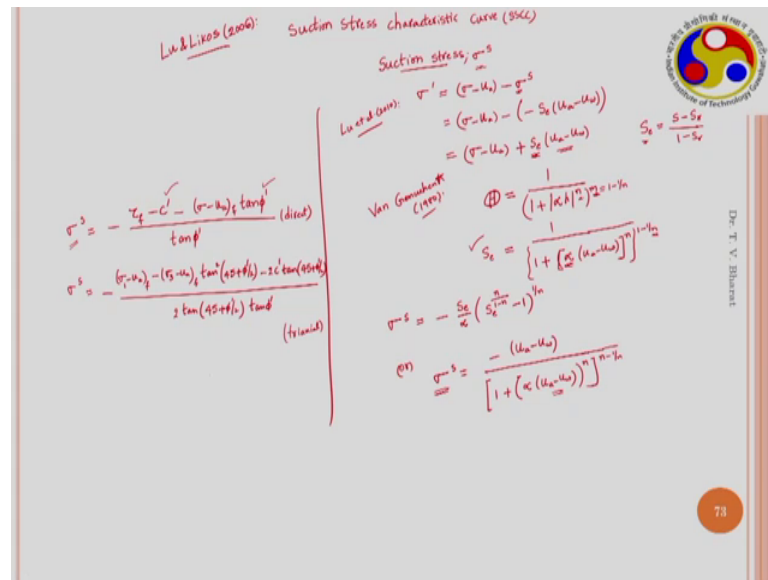 Lu & Likos (2006): Suction Stress characteristic curve (SSCC)
σˢ = - (τf - c' - (σ-ua)f tanφ') / tanφ' (direct)
σˢ = - ((σ1-ua)f - (σ3-ua)f tan²(45+φ'/2) - 2c' tan(45+φ'/2)) / (2 tan(45+φ'/2) tanφ')
(triaxial)
Suction stress, σˢ
Lu et al (2010): σ' = (σ-ua) - σˢ
= (σ-ua) - (-Se(ua-uw))
= (σ-ua) + Se(ua-uw)
Se = (S-Sr) / (1-Sr)
Van Genuchten (1980): Ⓗ = 1 / (1+|αh|ⁿ)
Se = 1 / {1 + [α(ua-uw)]ⁿ}^(1-1/n)
σˢ = - Se/α (Se^(n/(1-n)) - 1)^(1/n)
σˢ = -(ua-uw) / [1 + (α(ua-uw))ⁿ]^(n-1/n)
Indian Institute of Technology Guwahati
Dr. T. V. Bharat
73